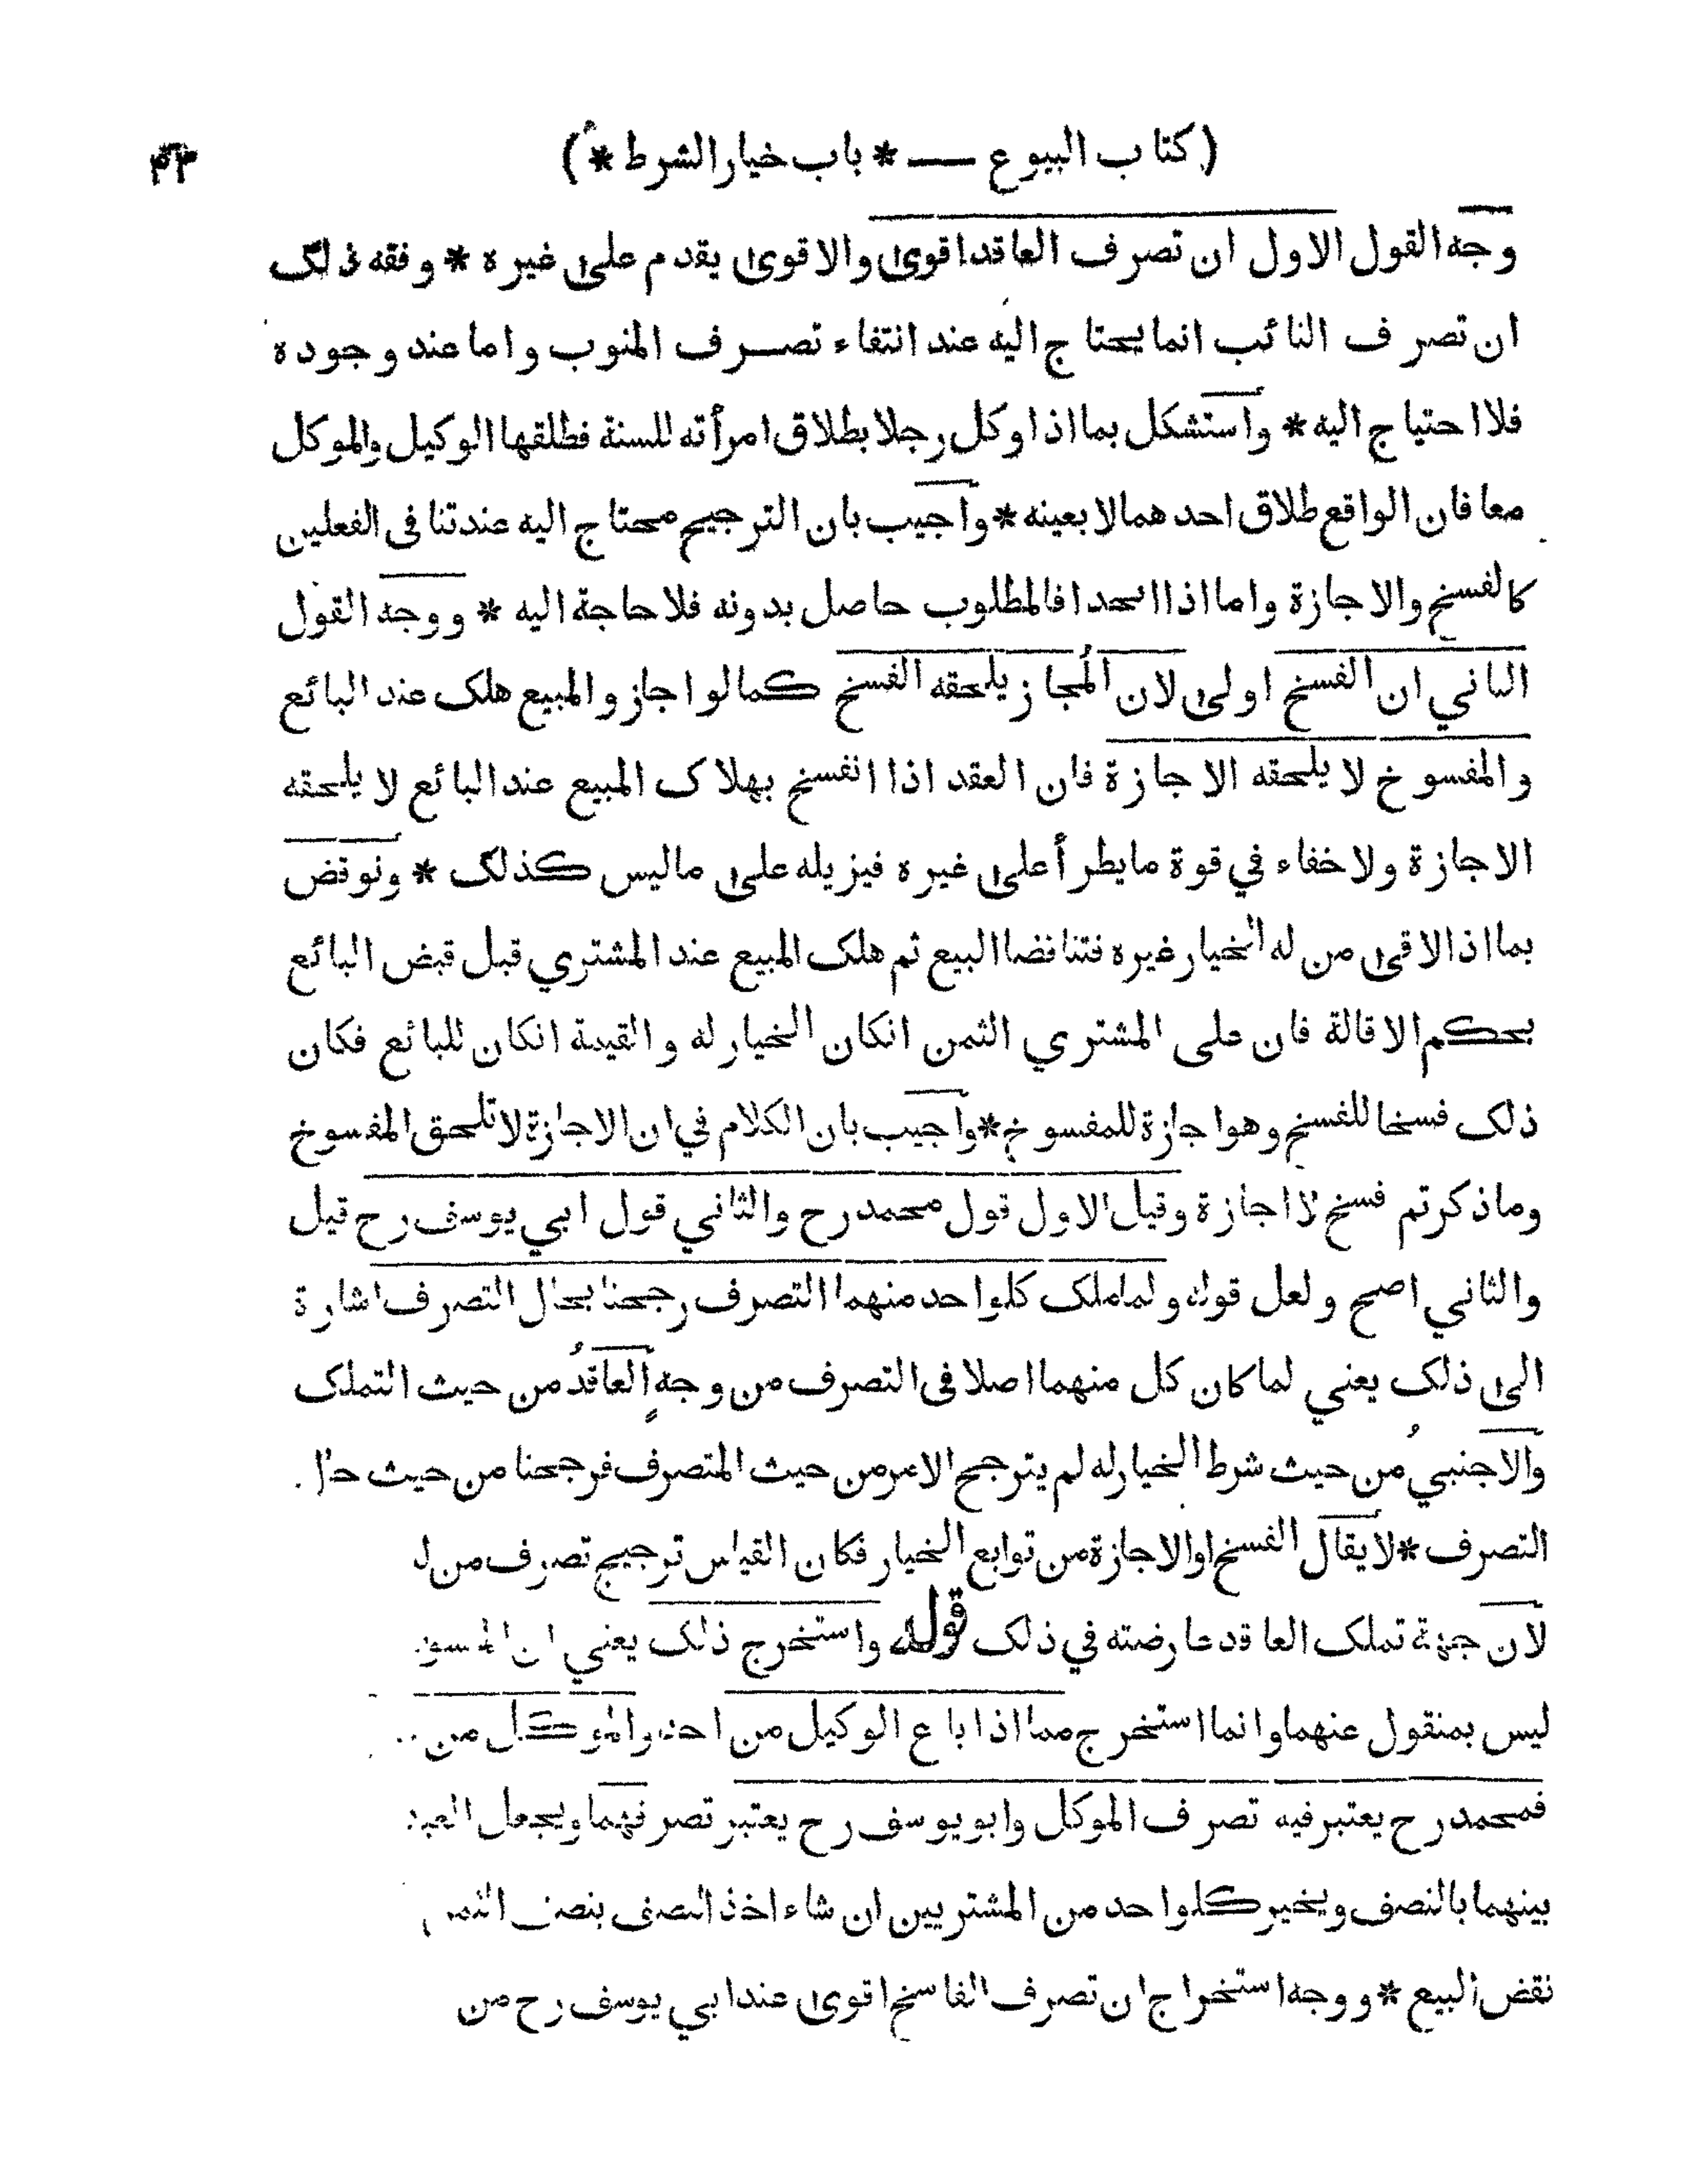 (كتاب البيوع — * باب خيار الشرط *) ۴۳
وجه القول الاول ان تصرف العاقد اقوى والاقوى يقدم على غيره * وفقه ذلك
ان تصرف النائب انما يحتاج اليه عند انتفاء تصرف المنوب واما عند وجوده
فلا احتياج اليه * واستشكل بما اذا وكل رجلا بطلاق امرأته للسنة فطلقها الوكيل والموكل
معا فان الواقع طلاق احدهما لا بعينه * واجيب بان الترجيح محتاج اليه عند تنافى الفعلين
كالفسخ والاجازة واما اذا اتحدا فالمطلوب حاصل بدونه فلا حاجة اليه * ووجه القول
الثاني ان الفسخ اولى لان المجاز يلحقه الفسخ كما لو اجاز والمبيع هلك عند البائع
والمفسوخ لا يلحقه الاجازة فان العقد اذا انفسخ بهلاك المبيع عند البائع لا يلحقه
الاجازة ولا خفاء في قوة ما يطرأ على غيره فيزيله على ما ليس كذلك * ونوقض
بما اذا لاقى من له الخيار غيره فتناقضا البيع ثم هلك المبيع عند المشتري قبل قبض البائع
بحكم الاقالة فان على المشتري الثمن انكان الخيار له والقيمة انكان للبائع فكان
ذلك فسخا للفسخ وهو اجازة للمفسوخ * واجيب بان الكلام في ان الاجازة لا تلحق المفسوخ
وما ذكرتم فسخ لا اجازة وقيل الاول قول محمد رح والثاني قول ابي يوسف رح قيل
والثاني اصح ولعل قوله ولما ملك كل واحد منهما التصرف رجحنا بحال التصرف اشارة
الى ذلك يعني لما كان كل منهما اصلا فى التصرف من وجهٍ العاقدُ من حيث التملك
والاجنبيُ من حيث شرط الخيار له لم يترجح الامر من حيث المتصرف فرجحنا من حيث حال
التصرف * لا يقال الفسخ او الاجازة من توابع الخيار فكان القياس ترجيح تصرف من
لان جهة تملك العاقد عارضته في ذلك قوله واستخرج ذلك يعني ان
ليس بمنقول عنهما وانما استخرج مما اذا باع الوكيل من احد والموكل من
فمحمد رح يعتبر فيه تصرف الموكل وابو يوسف رح يعتبر تصرفهما ويجعل العبد
بينهما بالنصف ويخير كل واحد من المشتريين ان شاء اخذ النصف بنصف الثمن
نقض البيع * ووجه استخراج ان تصرف الفاسخ اقوى عند ابي يوسف رح من